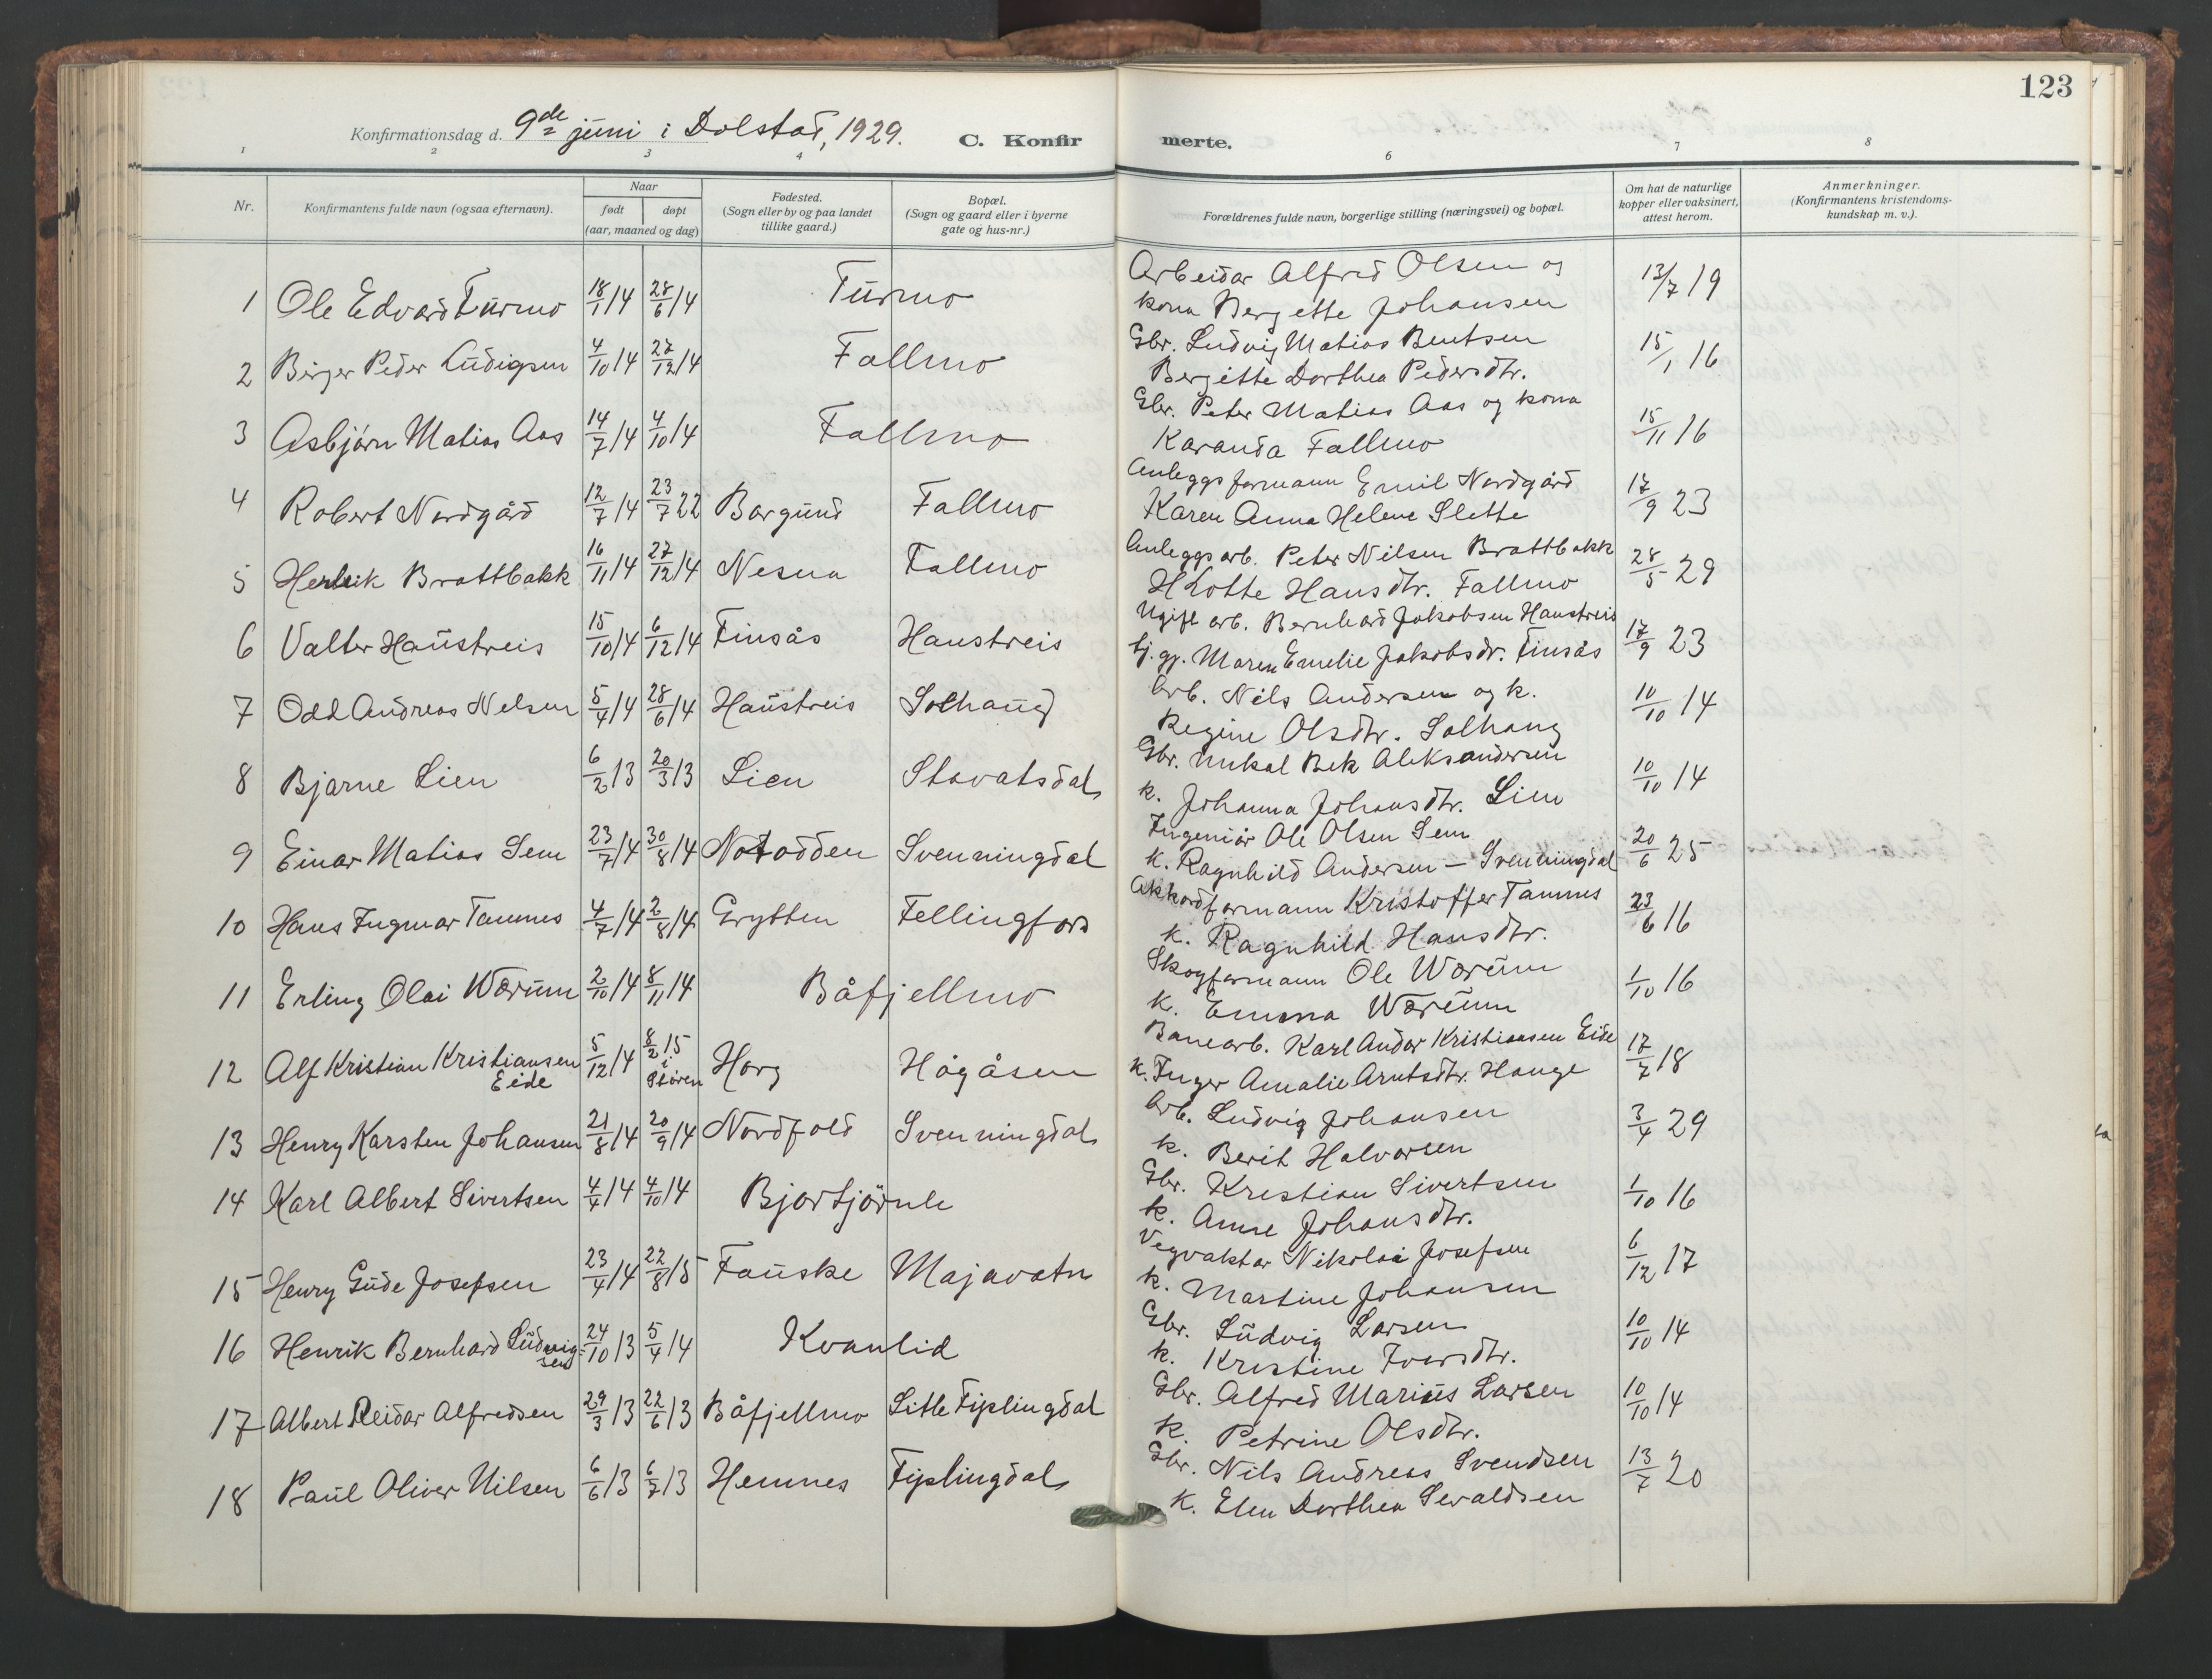 123
Konfirmationsdag d. 9de juni i Dolstad, 1929. C. Konfirmerte.
1 2 3 4 6 7 8
Nr. Konfirmantens fulde navn (ogsaa efternavn). Naar født døpt (aar, maaned og dag) Fødested. (Sogn eller by og paa landet tillike gaard.) Bopæl. (Sogn og gaard eller i byerne gate og hus-nr.) Forældrenes fulde navn, borgerlige stilling (næringsvei) og bopæl. Om hat de naturlige kopper eller vaksinert, attest herom. Anmerkninger. (Konfirmantens kristendomskundskap m. v.).
1 Ole Edvard Turmo 18/1 14 28/6 14 Turmo Arbeidar Alfred Olsen og 13/7 19
kona Bergette Johansen
2 Birger Peder Ludigsen 4/10 14 27/12 14 Fallmo Gbr. Ludvig Matias Bentsen 15/1 16
Bergitte Dorthea Pedersdtr.
3 Asbjørn Matias Aas 14/7 14 4/10 14 Fallmo Gbr. Peter Matias Aas og kona 15/11 16
Karanda Fallmo
4 Robert Nordgård 12/7 14 23/7 22 Borgund Fallmo Anleggsformann Emil Nordgård 17/9 23
Karen Anna Helene Slette
5 Henrik Brattbakk 16/11 14 27/12 14 Nesna Fallmo Anleggsarb. Peter Nilsen Brattbakk 28/5 29
Lotte Hansdtr. Fallmo
6 Valter Haustreis 15/10 14 6/12 14 Finsås Haustreis Ugift arb. Bernhard Jakobsen Haustreis 17/9 23
tj. gj. Maren Emelie Jakobsdr. Finsås
7 Odd Andreas Nelsen 5/4 14 28/6 14 Haustreis Solhaug Arb. Nils Andersen og k. 10/10 14
Regine Olsdtr. Solhaug
8 Bjarne Lien 6/2 13 20/3 13 Lien Stavatsdal Gbr. Mikal Bek Aleksandersen 10/10 14
k. Johanna Johansdtr. Lien
9 Einar Matias Sem 23/7 14 30/8 14 Notodden Svenningdal Ingeniør Ole Olsen Sem 20/6 25
k. Ragnhild Andersen — Svenningdal
10 Hans Ingmar Tamnes 4/7 14 2/8 14 Grytten Fellingfors Akkordformann Kristoffer Tamnes 23/6 16
k. Ragnhild Hansdtr.
11 Erling Olai Wærum 2/10 14 8/11 14 Båfjellmo Skogformann Ole Wærum 1/10 16
k. Emma Wærum
12 Alf Kristian Kristiansen Eide 5/12 14 8/2 15 i Støren Horg Högåsen Banearb. Karl Andor Kristiansen Eide 17/7 18
k. Inger Amalie Arntsdtr. Hauge
13 Henry Karsten Johansen 21/8 14 20/9 14 Nordfold Svenningdal Arb. Ludvig Johansen 3/4 29
k. Berit Halvorsen
14 Karl Albert Sivertsen 4/4 14 4/10 14 Bjortjørnle Gbr. Kristian Sivertsen 1/10 16
k. Anne Johansdtr.
15 Henry Gude Josefsen 23/4 14 22/8 15 Fauske Majavatn Vegvaktar Nikolai Josefsen 6/12 17
k. Martine Johansen
16 Henrik Bernhard Ludvigsen 24/10 13 5/4 14 Kvanlid Gbr. Ludvig Larsen 10/10 14
k. Kristine Iversdtr.
17 Albert Reidar Alfredsen 29/3 13 22/6 13 Båfjellmo Litle Fiplingdal Gbr. Alfred Marius Larsen 10/10 14
k. Petrine Olsdtr.
18 Paul Oliver Nilsen 6/6 13 6/7 13 Hemnes Fiplingdal Gbr. Nils Andreas Svendsen 13/7 20
k. Elen Dorthea Sevaldsen